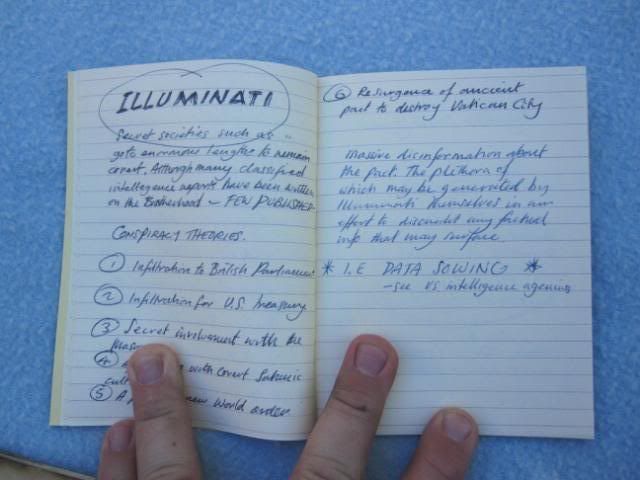 ILLUMINATI
Secret societies such as "
go to enormous lengths to remain
covert. Although many classified
intellegence reports have been written
on the Brotherhood - FEW PUBLISHED.
CONSPIRACY THEORIES.
① Infiltration to British Parliament
② Infiltration for U.S. treasury
③ Secret involvement with the
④ with Covert Satanic
⑤ A new World order
⑥ Resurgence of ancient
pact to destroy Vatican City
Massive disinformation about
the pact. The plethora of
which may be generated by
Illuminati themselves in an
effort to discredit any factual
info that may surface
* I.E DATA SOWING *
- see US intelligence agencies